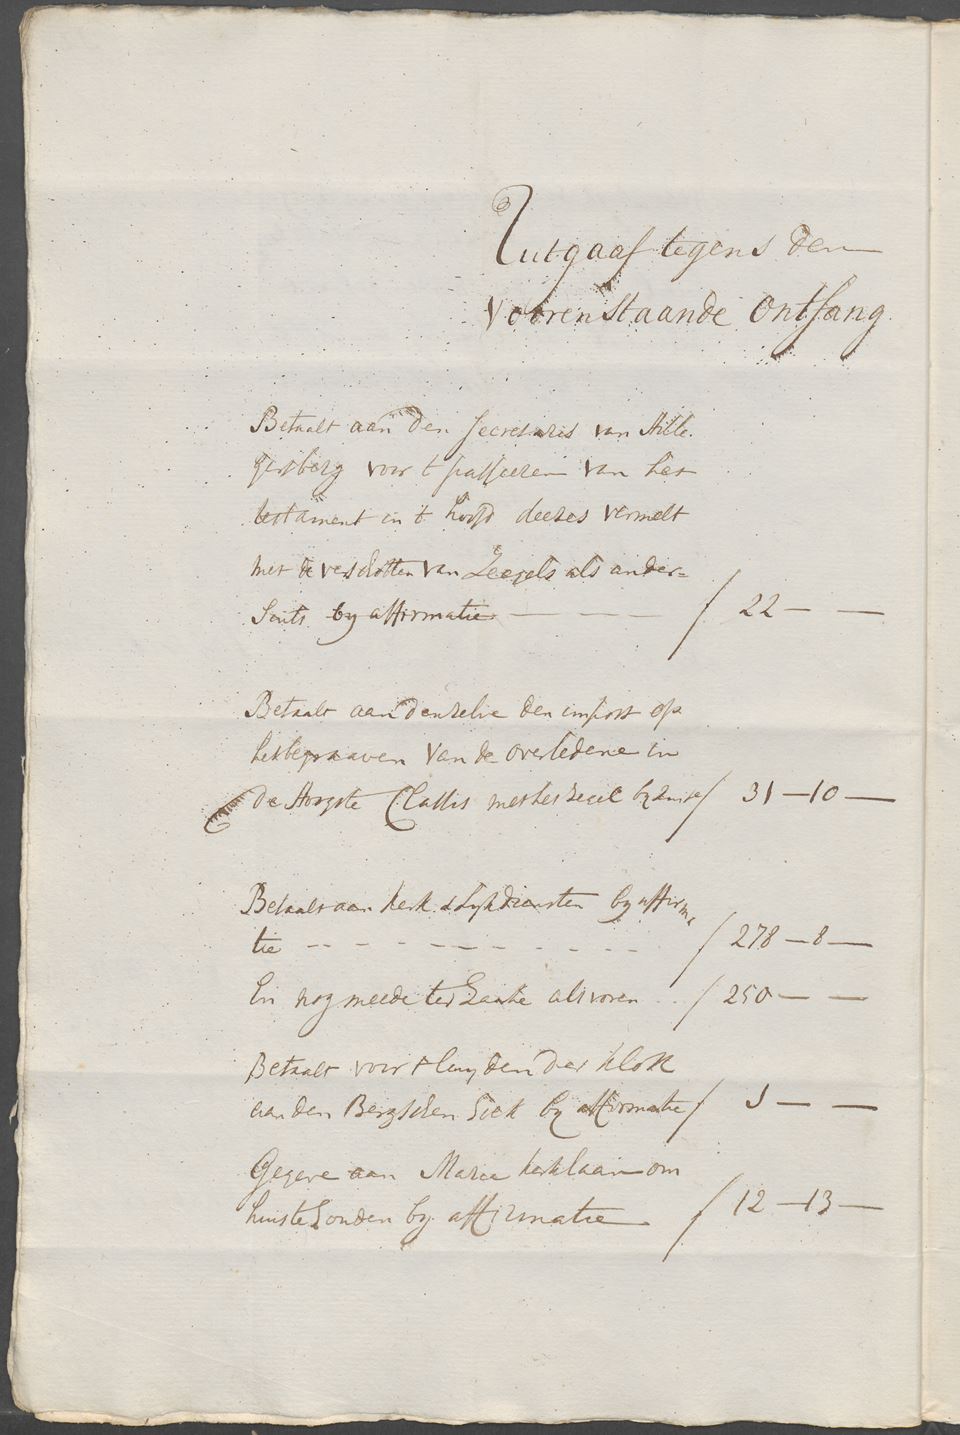 Uutgaaf tegens den
voorenstaande Ontfang
Betaalt aan den Secretaris van Hille
gersberg voor t passeeren van het
testament in 't hoofd deezes vermelt
met de verschotten van Zeegels als ander=
sints by affirmatie - - - ƒ 22 — —
Betaalt aan denselve den impost op
het begraaven van de overledene in
de Hoogste Classis met het zegel by ƒ 31 — 10 —
Betaalt aan kerk & Lykdiensten by affirma
tie - - - - - - - - ƒ 278 — 8 —
En nog meede ter Zaake als voren . . ƒ 250 — —
Betaalt voor t luyden der klok
aan den Bergschen by affirmatie ƒ 3 — —
Gegeve aan Maria kerklaan om
by affirmatie ƒ 12 — 13 —